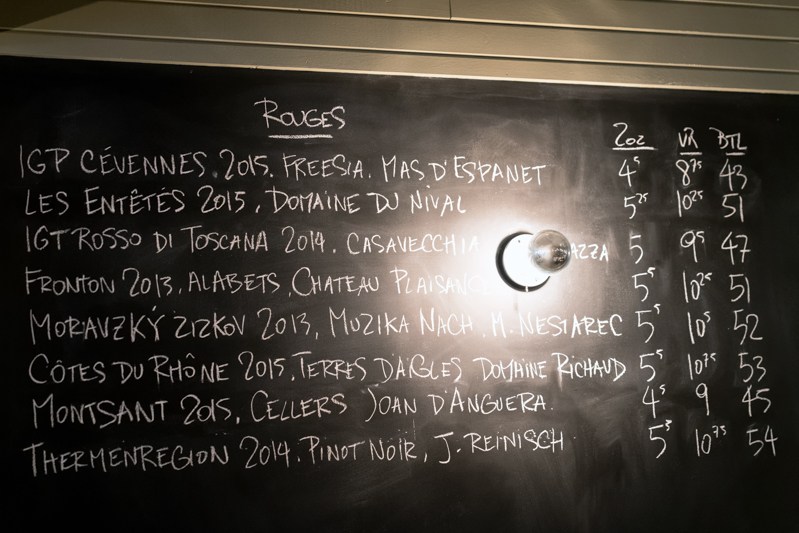 ROUGES 2oz VR BTL
IGP CÉVENNES. 2015. FREESIA. MAS D'ESPANET 4⁵ 8⁷⁵ 43
LES ENTÊTÉS 2015, DOMAINE DU NIVAL 5²⁵ 10²⁵ 51
IGT ROSSO DI TOSCANA 2014. CASAVECCHIA AZZA 5 9⁵ 47
FRONTON 2013. ALABETS. CHATEAU PLAISANC 5⁵ 10²⁵ 51
MORAVZKÝ ZIZKOV 2013, MUZIKA NACH. M. NESTAREC 5⁵ 10⁵ 52
CÔTES DU RHÔNE 2015. TERRES D'AIGLES DOMAINE RICHAUD 5⁵ 10⁷⁵ 53
MONTSANT 2015. CELLERS JOAN D'ANGUERA. 4⁵ 9 45
THERMENREGION 2014. PINOT NOIR, J. REINISCH 5⁵ 10⁷⁵ 54